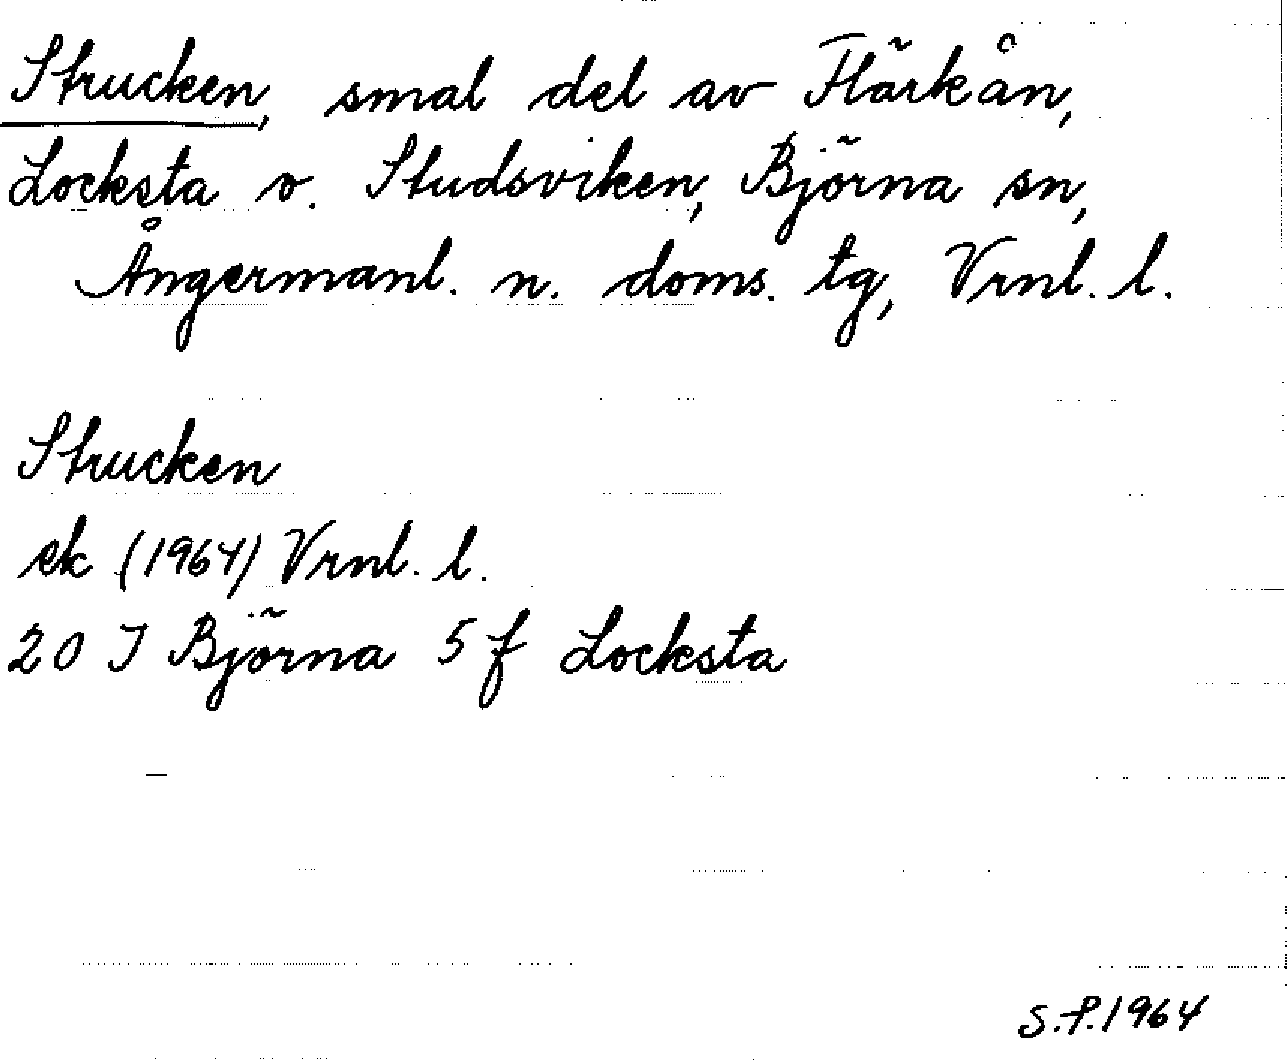 Strucken, smal del av Flärkån,
Locksta o. Studsviken, Björna sn,
Ångermanl. n. doms. tg, Vrnl. l.
Strucken
ek (1964) Vrnl. l.
20 I Björna 5 f Locksta
S.P.1964